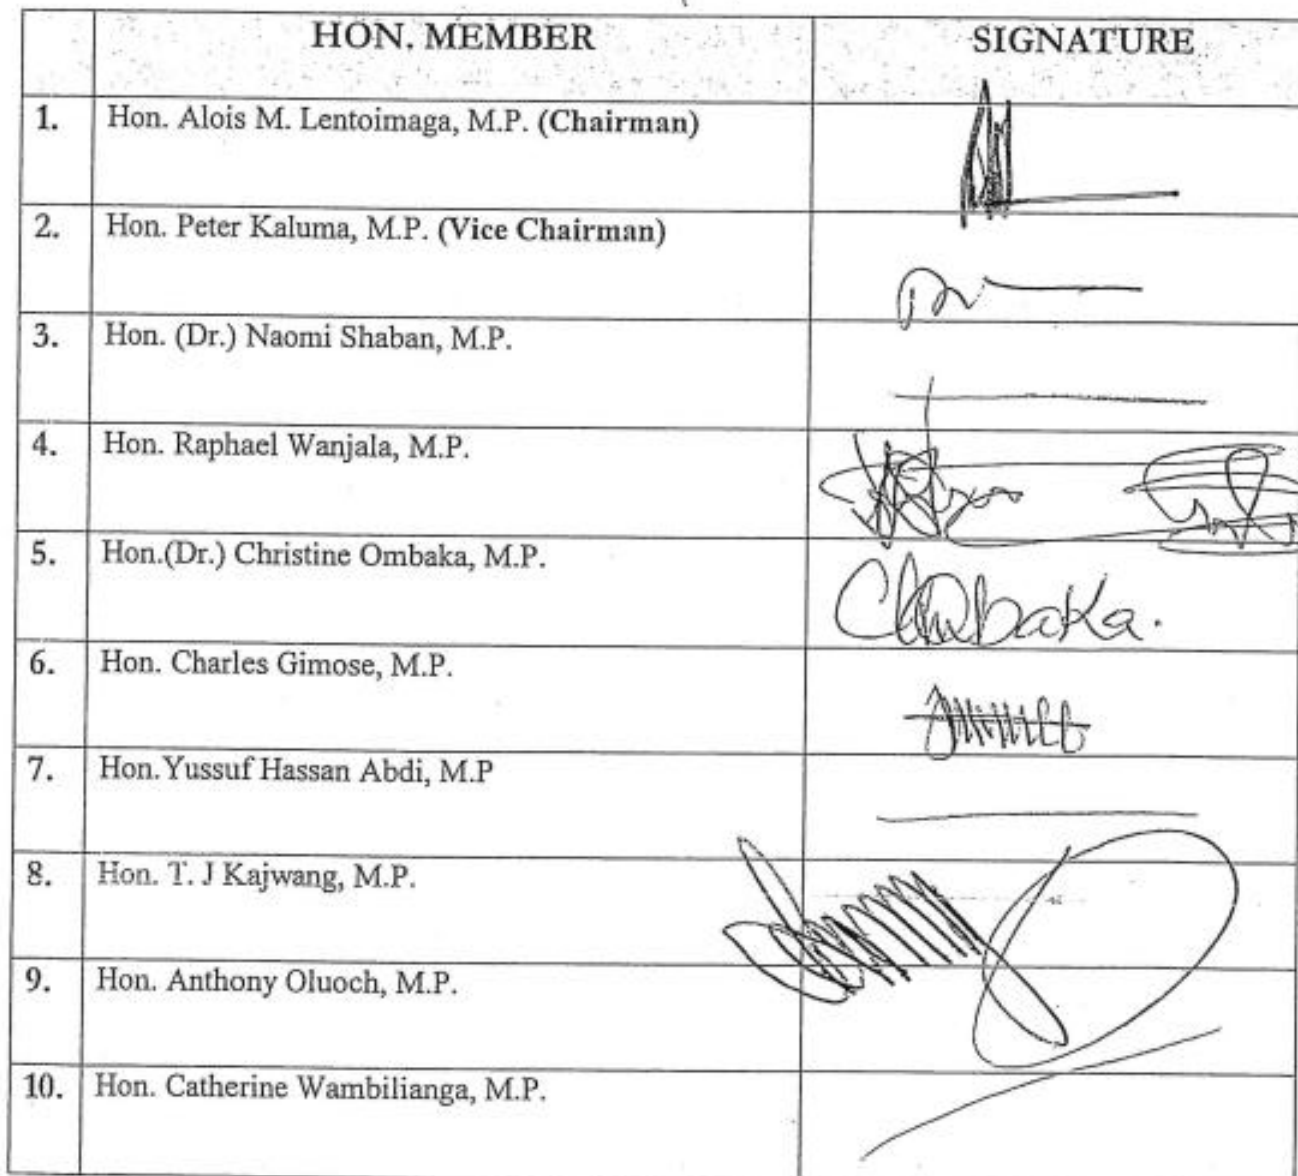 HON. MEMBER SIGNATURE
1. Hon. Alois M. Lentoimaga, M.P. (Chairman)
2. Hon. Peter Kaluma, M.P. (Vice Chairman)
3. Hon. (Dr.) Naomi Shaban, M.P.
4. Hon. Raphael Wanjala, M.P.
5. Hon.(Dr.) Christine Ombaka, M.P.
6. Hon. Charles Gimose, M.P.
7. Hon.Yussuf Hassan Abdi, M.P
8. Hon. T. J Kajwang, M.P.
9. Hon. Anthony Oluoch, M.P.
10. Hon. Catherine Wambilianga, M.P.